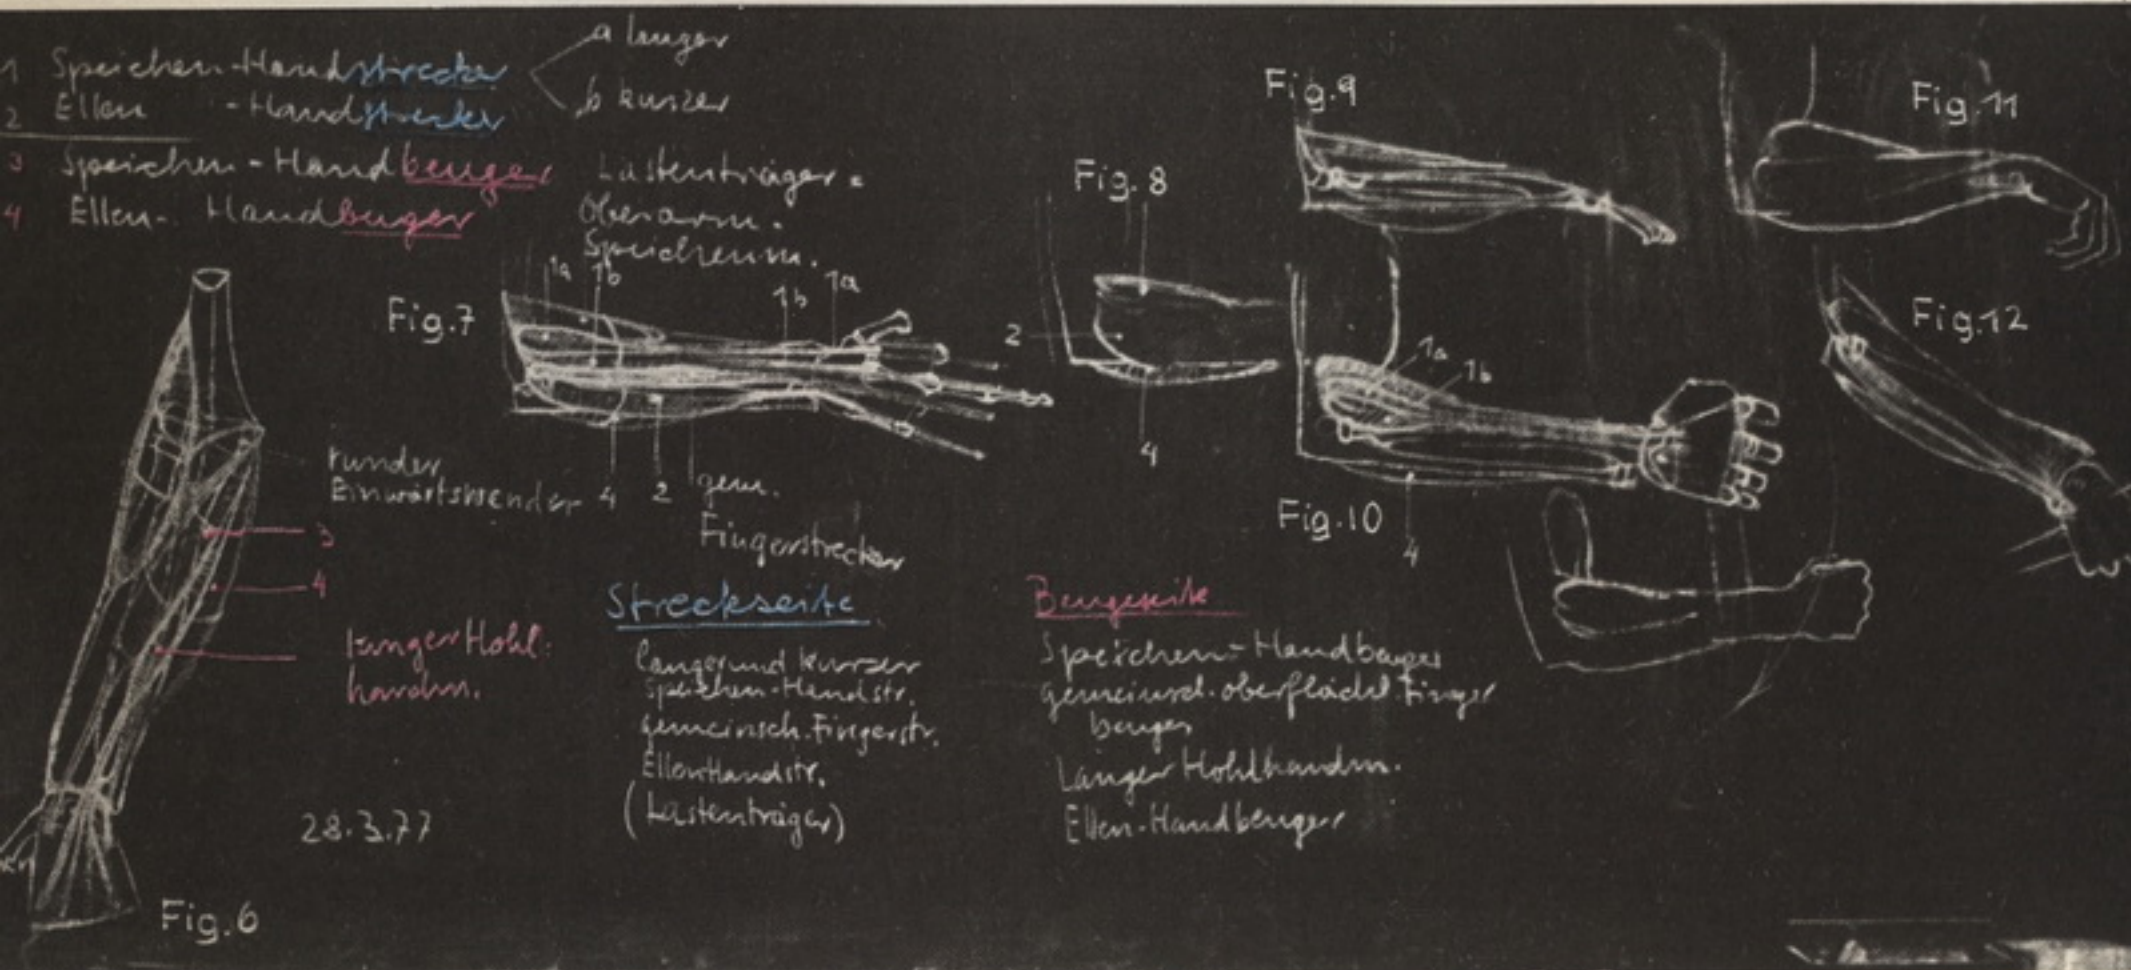 1 Speichen-Handstrecker
a langer
b kurzer
2 Ellen -Handstrecker
3 Speichen-Handbeuger
4 Ellen- Handbuger
Lastenträger =
Oberarm.
Speichenm.
Fig.7
1a 1b 1b 1a
runder
Einwärtswender
4 2 gem.
Fingerstrecker
3
4
langer Hohl:
handm.
28.3.77
Fig.6
Streckseite
langer und kurzer
Speichen-Handstr.
gemeinsch. Fingerstr.
Ellen Handstr.
(Lastenträger)
Fig.8
2
4
Fig.9
1a
1b
Fig.10
4
Fig.11
Fig.12
Beugeseite
Speichen-Handbeuger
gemeinsch. oberflächl. Finger
beuger
Langer Hohlhandm.
Ellen-Handbeuger